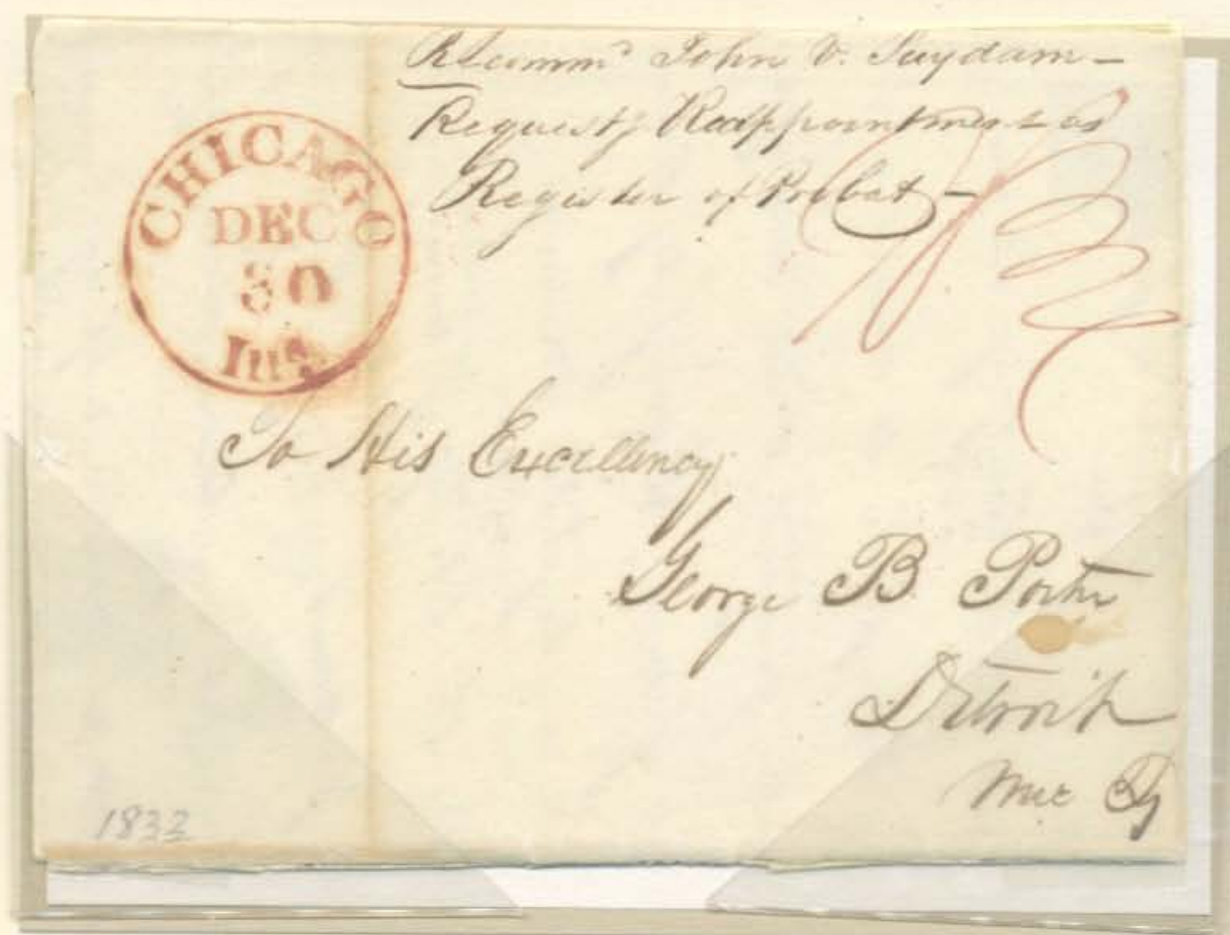 Recommd John V. Suydam —
Requests Reappointment as
Register of Probat —
CHICAGO
DEC
30
Ill's.
To His Excellency
George B. Porter
Detroit
Mic Ty
1832